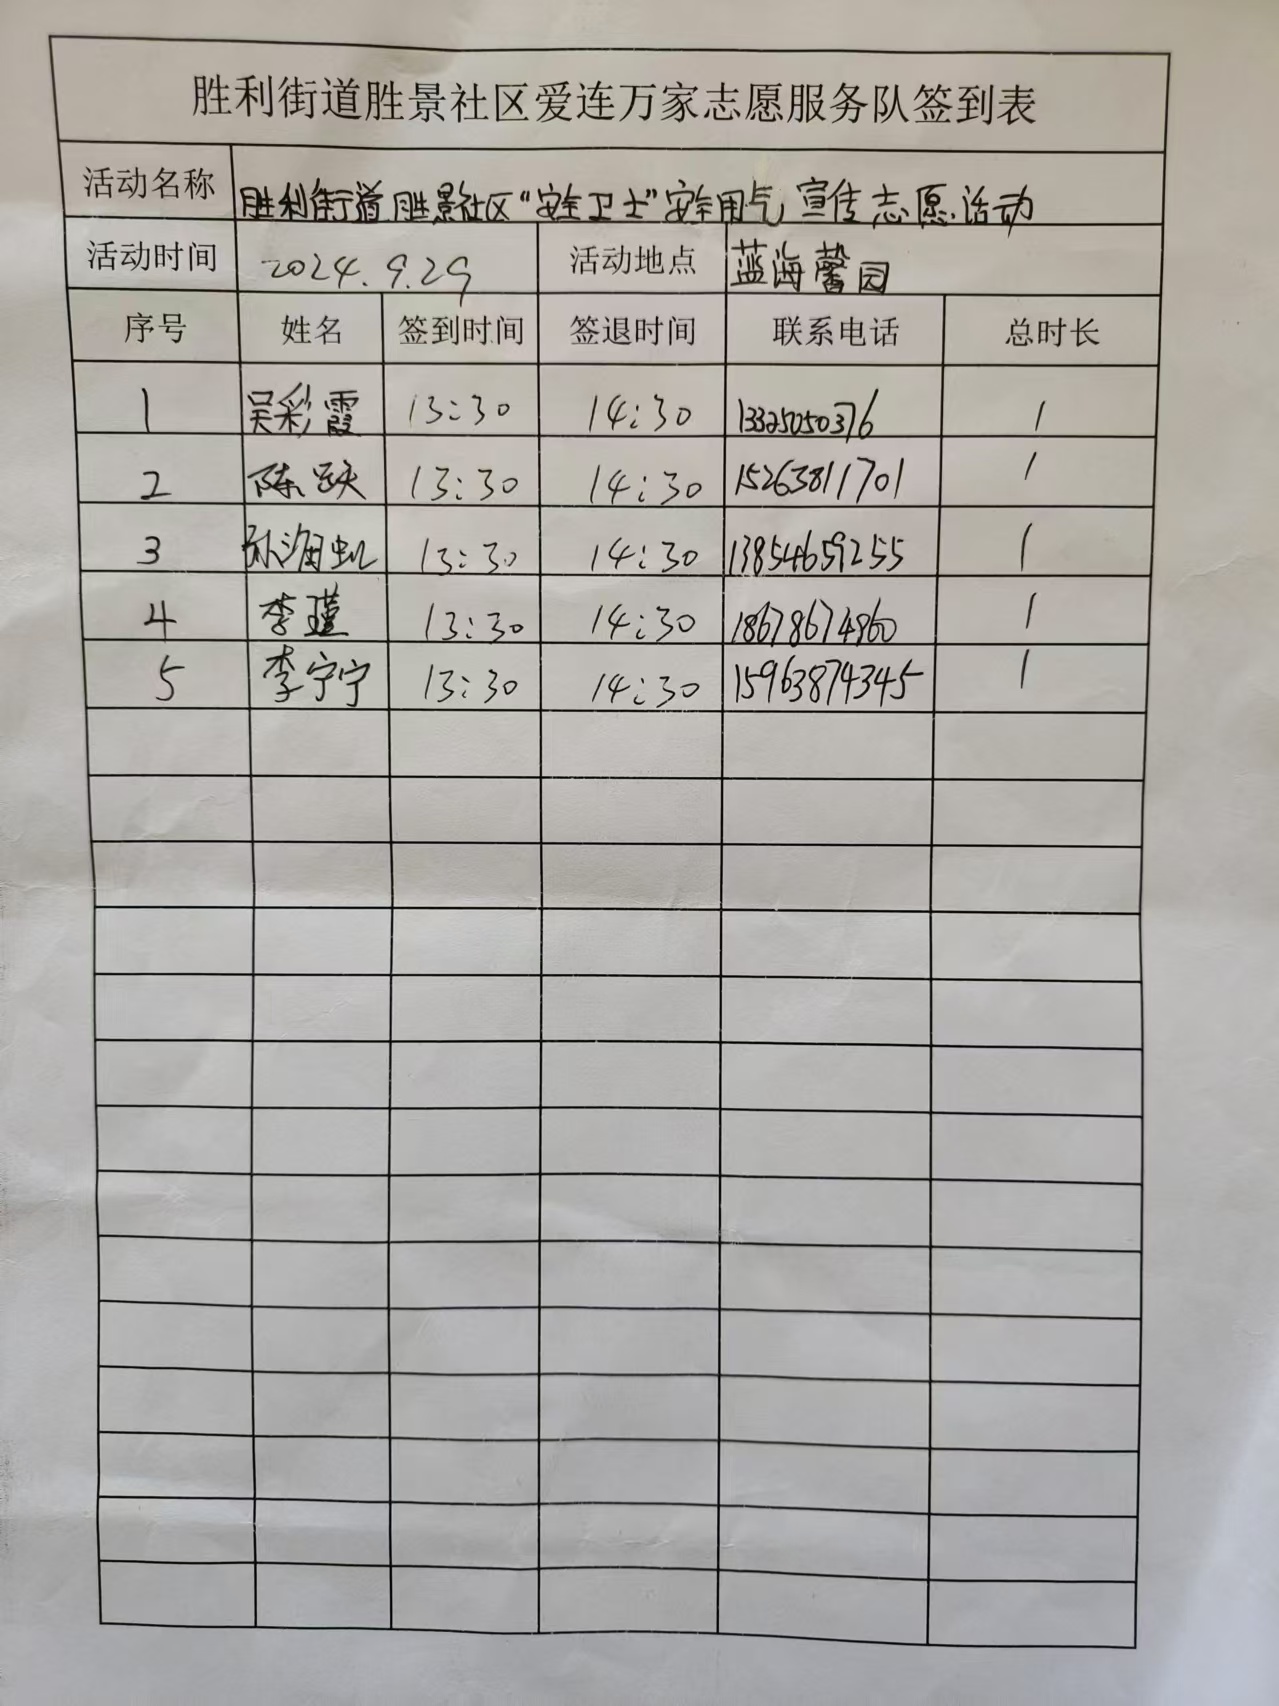 胜利街道胜景社区爱连万家志愿服务队签到表
活动名称 胜利街道胜景社区“安全卫士”安全用气宣传志愿活动
活动时间 2024.9.29 活动地点 蓝海馨园
序号 姓名 签到时间 签退时间 联系电话 总时长
1 吴彩霞 13:30 14:30 13325050376 1
2 陈跃 13:30 14:30 15263811701 1
3 孙海虹 13:30 14:30 13854659255 1
4 李瑾 13:30 14:30 18678674860 1
5 李宁宁 13:30 14:30 15963874345 1